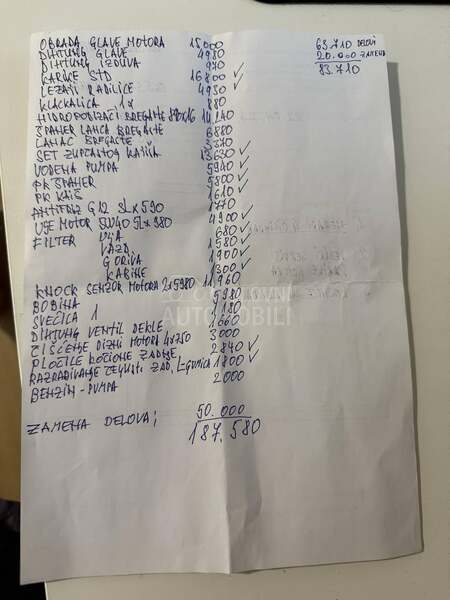 OBRADA GLAVE MOTORA 15000
DIHTUNG GLAVE 4950
DIHTUNG IZDUVA 970
KARIKE STD 16800 ✓
LEŽAJI RADILICE 4950 ✓
KLACKALICA 1x 880
HIDROPODIZAČI BREGASTE 880x16 14.240
ŠPANER LANCA BREGASTE 6880
LANAC BREGASTE 3370
SET ZUPČASTOG KAIŠA 13630 ✓
VODENA PUMPA 5940 ✓
PK ŠPANER 5800 ✓
PK KAIŠ 1610 ✓
ANTIFRIZ G12 3Lx590 1770
ULJE MOTOR 5W40 5Lx980 4900 ✓
FILTER ULJA 680 ✓
VAZD. 1580 ✓
GORIVA 1900 ✓
KABINE 1300 ✓
KNOCK SENZOR MOTORA 2x5980 11960
BOBINA 5980
SVEĆICA 1
DIHTUNG VENTIL DEKLE 1660
ČIŠĆENJE DIZNI MOTORA 4x750 3000
PLOČICE KOČIONE ZADNJE 2840 ✓
RAZRAĐIVANJE ČEGUSTI ZAD, + gumica 1800 ✓
BENZIN - PUMPA 2000
ZAMENA DELOVA; 50.000
187.580
63.710 DELOVI
20.000 ZAMENA
83.710
POLOVNI
AUTOMOBILI